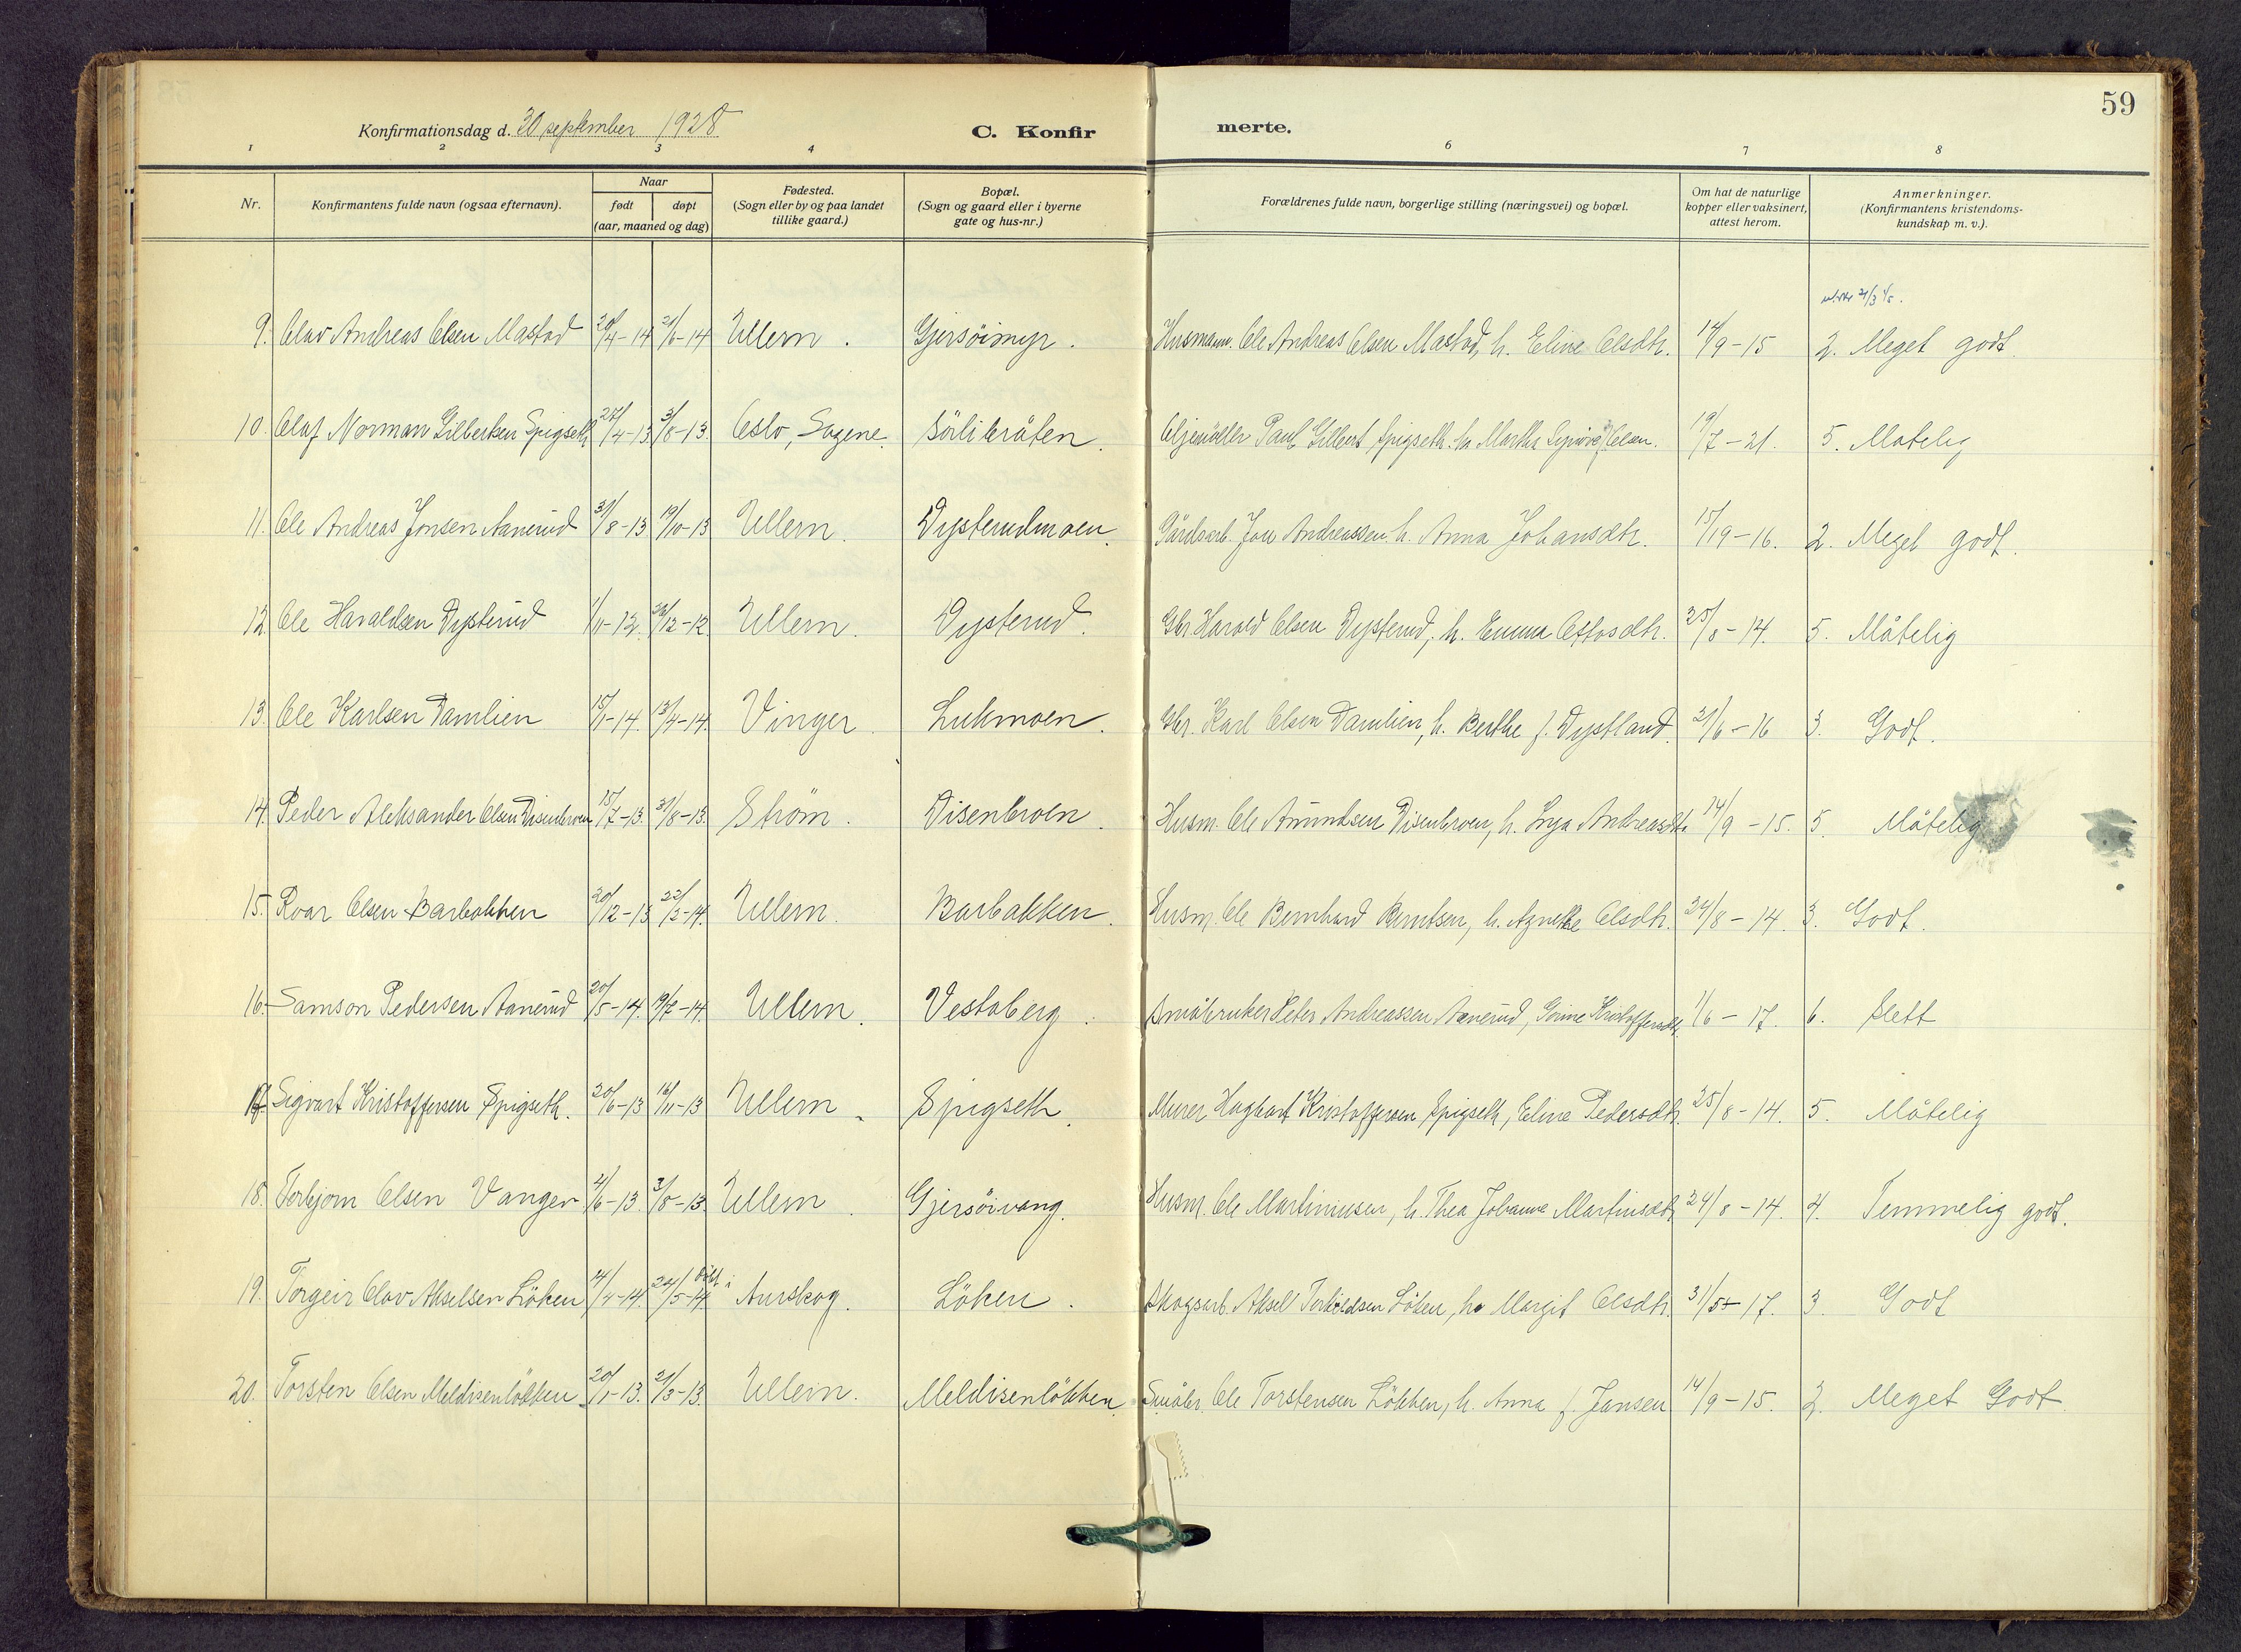 59
Konfirmationsdag d. 30 september 1928 C. Konfir merte.
1 2 3 4 6 7 8
Nr. Konfirmantens fulde navn (ogsaa efternavn). Naar født døpt (aar, maaned og dag) Fødested. (Sogn eller by og paa landet tillike gaard.) Bopæl. (Sogn og gaard eller i byerne gate og hus-nr.) Forældrenes fulde navn, borgerlige stilling (næringsvei) og bopæl. Om hat de naturlige kopper eller vaksinert, attest herom. Anmerkninger. (Konfirmantens kristendoms-kundskap m. v.).
9. Olav Andreas Olsen Mastad 20/4-14 21/6-14 Ullern. Gjersöimyr. Husmann Ole Andreas Olsen Mastad, h. Eline Olsdtr. 14/9-15 2. Meget godt.
10. Olaf Norman Gilbertsen Spigseth 27/4-13 3/8-13. Oslo, Sagene. Sörlibråten. Paul Gilbert Spigseth h. Martha Olsen. 19/7-21. 5. Måtelig
11. Ole Andreas Jonsen Aanerud 31/8-13 19/10-13 Ullern. Dysterudmoen. Gårdsarb. Jon Andreassen h. Anna Johansdtr. 15/19-16. 2. Meget godt.
12. Ole Haraldsen Dysterud 1/11-12. 26/12-12 Ullern. Dysterud. Gbr. Harald Olsen Dysterud, h. Emma Ottosdtr. 25/8-14. 5. Måtelig
13. Ole Karlsen Damlien 15/1-14. 13/4-14. Vinger. Lukmoen. Gbr. Karl Olsen Damlien, h. Berthe f. Dystland. 21/6-16 3. Godt.
14. Peder Aleksander Olsen Disenbroen 15/7-13. 31/8-13. Ström. Disenbroen. Husm. Ole Amundsen Disenbroen, h. Inga Andreasdtr. 14/9-15. 5. Måtelig
15. Roar Olsen Barbakken 20/12-13 22/2-14. Ullern. Barbakken. Husm. Ole Bernhard Berntsen, h. Agnethe Olsdtr. 24/8-14 3. Godt.
16. Samson Pedersen Aanerud 20/5-14. 19/7-14. Ullern. Vestaberg. Småbruker Peter Andreassen Aanerud, Gorine Kristoffersdtr. 1/6-17. 6. Slett
17 Sigvart Kristoffersen Spigseth. 20/6-13 16/11-13 Ullern. Spigseth. Murer Haghart Kristoffersen Spigseth, Eline Pedersdtr. 25/8-14. 5. Måtelig
18. Torbjørn Olsen Vangen 4/6-13. 3/8-13. Ullern. Gjersöivang. Husm. Ole Martinusen, h. Thea Johanne Martinsdtr. 24/8-14. 4. Temmelig godt.
19. Torgeir Olav Akselsen Löken 4/4-14. 24/5-14 født i Aurskog. Löken. Skogsarb. Aksel Torkildsen Löken, h. Margit Olsdtr. 31/5-17. 3. Godt
20. Torsten Olsen Meldisenlökken 20/1-13. 21/3-13. Ullern. Meldisenlökken. Småbr. Ole Torstensen Lökken, h. Anna f. Jansen 14/9-15. 2. Meget Godt.